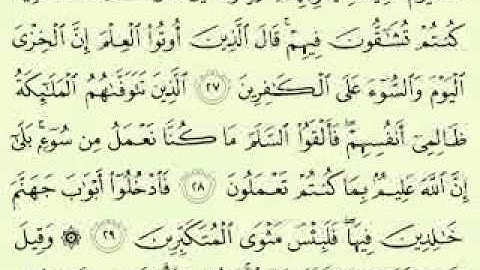 كُنتُمْ تُشَٰٓقُّونَ فِيهِمْ ۚ قَالَ ٱلَّذِينَ أُوتُوا۟ ٱلْعِلْمَ إِنَّ ٱلْخِزْىَ
ٱلْيَوْمَ وَٱلسُّوٓءَ عَلَى ٱلْكَٰفِرِينَ ٢٧ ٱلَّذِينَ تَتَوَفَّىٰهُمُ ٱلْمَلَٰٓئِكَةُ
ظَالِمِىٓ أَنفُسِهِمْ ۖ فَأَلْقَوُا۟ ٱلسَّلَمَ مَا كُنَّا نَعْمَلُ مِن سُوٓءٍۭ ۚ بَلَىٰٓ
إِنَّ ٱللَّهَ عَلِيمٌۢ بِمَا كُنتُمْ تَعْمَلُونَ ٢٨ فَٱدْخُلُوٓا۟ أَبْوَٰبَ جَهَنَّمَ
خَٰلِدِينَ فِيهَا ۖ فَلَبِئْسَ مَثْوَى ٱلْمُتَكَبِّرِينَ ٢٩ ۞ وَقِيلَ